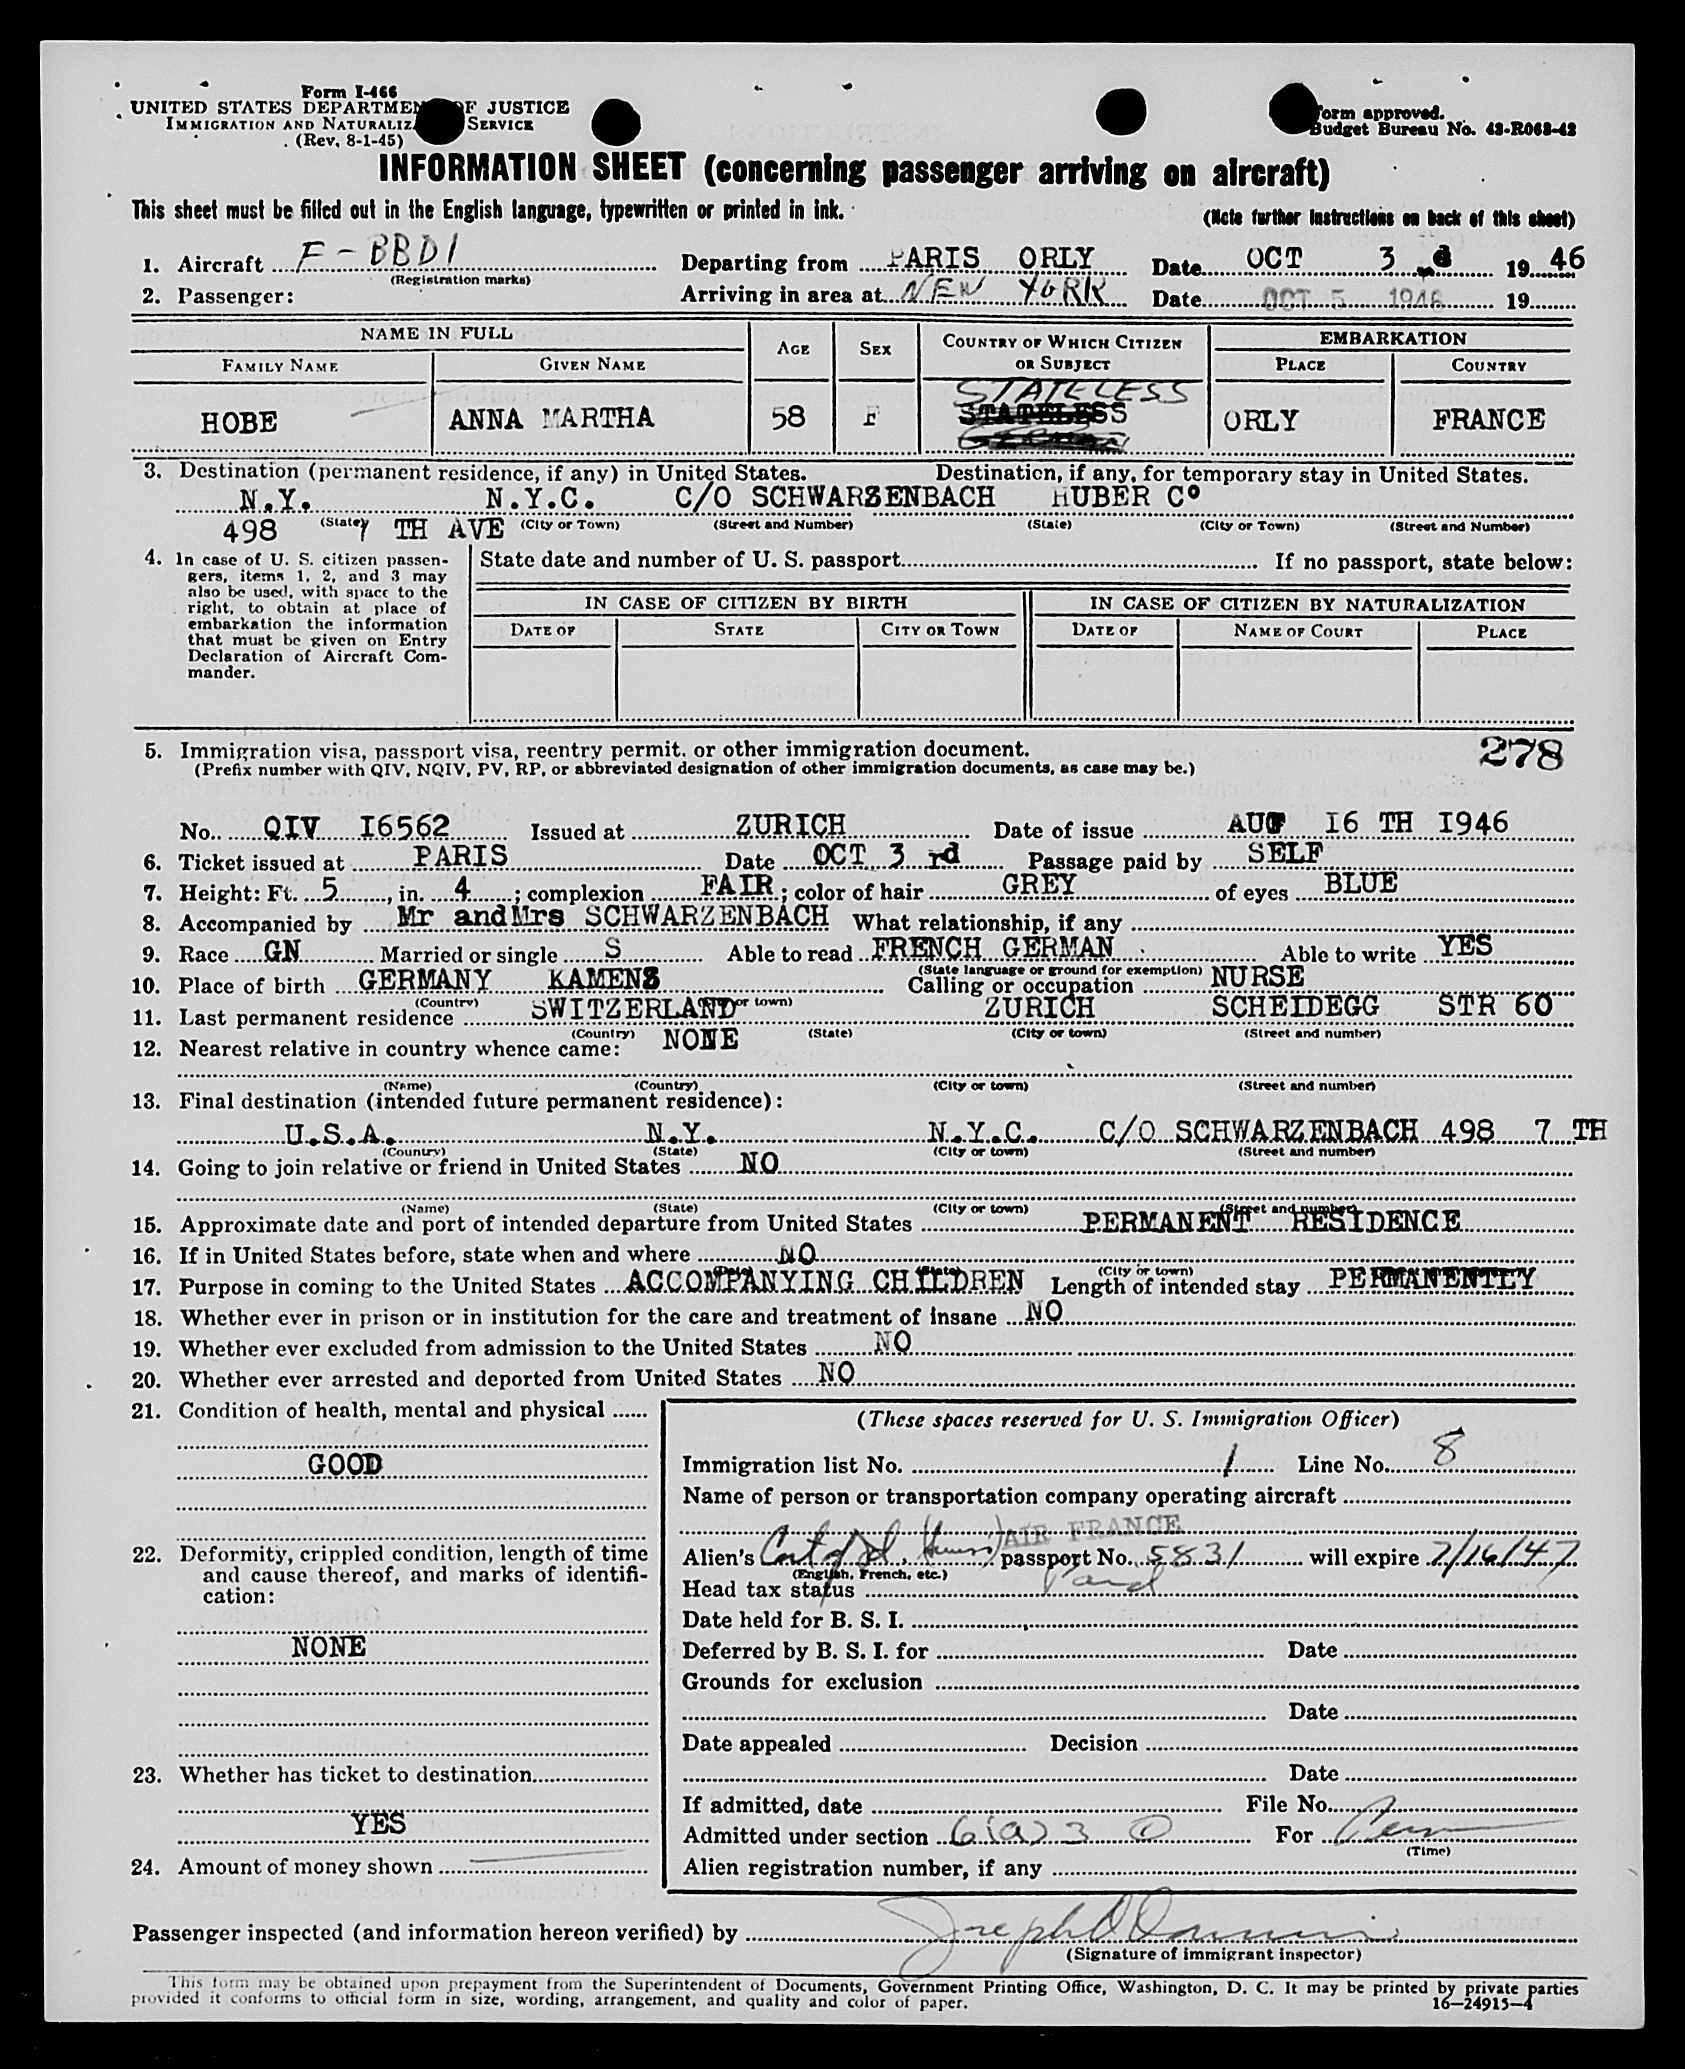 Form I-466
UNITED STATES DEPARTMENT OF JUSTICE
IMMIGRATION AND NATURALIZ SERVICE
(Rev. 8-1-45)
Form approved.
Budget Bureau No. 43-R068-42
INFORMATION SHEET (concerning passenger arriving on aircraft)
This sheet must be filled out in the English language, typewritten or printed in ink.
(Note further instructions on back of this sheet)
1. Aircraft F-BBDI Departing from PARIS ORLY Date OCT 3 d 19 46
(Registration marks)
2. Passenger: Arriving in area at NEW YORK Date OCT 5 1946 19
NAME IN FULL AGE SEX COUNTRY OF WHICH CITIZEN OR SUBJECT EMBARKATION
FAMILY NAME GIVEN NAME PLACE COUNTRY
STATELESS
HOBE ANNA MARTHA 58 F STATELESS ORLY FRANCE
3. Destination (permanent residence, if any) in United States. Destination, if any, for temporary stay in United States.
N.Y. N.Y.C. C/O SCHWARZENBACH HUBER Co
(State) (City or Town) (Street and Number) (State) (City or Town) (Street and Number)
498 7 TH AVE
4. In case of U. S. citizen passengers, items 1, 2, and 3 may also be used, with space to the right, to obtain at place of embarkation the information that must be given on Entry Declaration of Aircraft Commander.
State date and number of U. S. passport If no passport, state below:
IN CASE OF CITIZEN BY BIRTH IN CASE OF CITIZEN BY NATURALIZATION
DATE OF STATE CITY OR TOWN DATE OF NAME OF COURT PLACE
5. Immigration visa, passport visa, reentry permit, or other immigration document. 278
(Prefix number with QIV, NQIV, PV, RP, or abbreviated designation of other immigration documents, as case may be.)
No. QIV I6562 Issued at ZURICH Date of issue AUG I6 TH I946
6. Ticket issued at PARIS Date OCT 3 rd Passage paid by SELF
7. Height: Ft. 5, in. 4; complexion FAIR; color of hair GREY of eyes BLUE
8. Accompanied by Mr and Mrs SCHWARZENBACH What relationship, if any
9. Race GN Married or single S Able to read FRENCH GERMAN Able to write YES
(State language or ground for exemption)
10. Place of birth GERMANY KAMENS Calling or occupation NURSE
(Country) (City or town)
11. Last permanent residence SWITZERLAND ZURICH SCHEIDEGG STR 60
(Country) (State) (City or town) (Street and number)
12. Nearest relative in country whence came: NONE
(Name) (Country) (City or town) (Street and number)
13. Final destination (intended future permanent residence):
U.S.A. N.Y. N.Y.C. C/O SCHWARZENBACH 498 7 TH
(Country) (State) (City or town) (Street and number)
14. Going to join relative or friend in United States NO
(Name) (State) (City or town) (Street and number)
15. Approximate date and port of intended departure from United States PERMANENT RESIDENCE
16. If in United States before, state when and where NO
(Date) (State) (City or town)
17. Purpose in coming to the United States ACCOMPANYING CHILDREN Length of intended stay PERMANENTLY
18. Whether ever in prison or in institution for the care and treatment of insane NO
19. Whether ever excluded from admission to the United States NO
20. Whether ever arrested and deported from United States NO
21. Condition of health, mental and physical
GOOD
22. Deformity, crippled condition, length of time and cause thereof, and marks of identification:
NONE
23. Whether has ticket to destination
YES
24. Amount of money shown
(These spaces reserved for U. S. Immigration Officer)
Immigration list No. 1 Line No. 8
Name of person or transportation company operating aircraft
AIR FRANCE
Alien's Cert of Id. passport No. 5831 will expire 7/16/47
(English, French, etc.)
Head tax status Paid
Date held for B. S. I.
Deferred by B. S. I. for Date
Grounds for exclusion
Date
Date appealed Decision
Date
If admitted, date File No.
Admitted under section 6(a)3 For Perm
(Time)
Alien registration number, if any
Passenger inspected (and information hereon verified) by Joseph
(Signature of immigrant inspector)
This form may be obtained upon prepayment from the Superintendent of Documents, Government Printing Office, Washington, D. C. It may be printed by private parties
provided it conforms to official form in size, wording, arrangement, and quality and color of paper.
16—24915-4